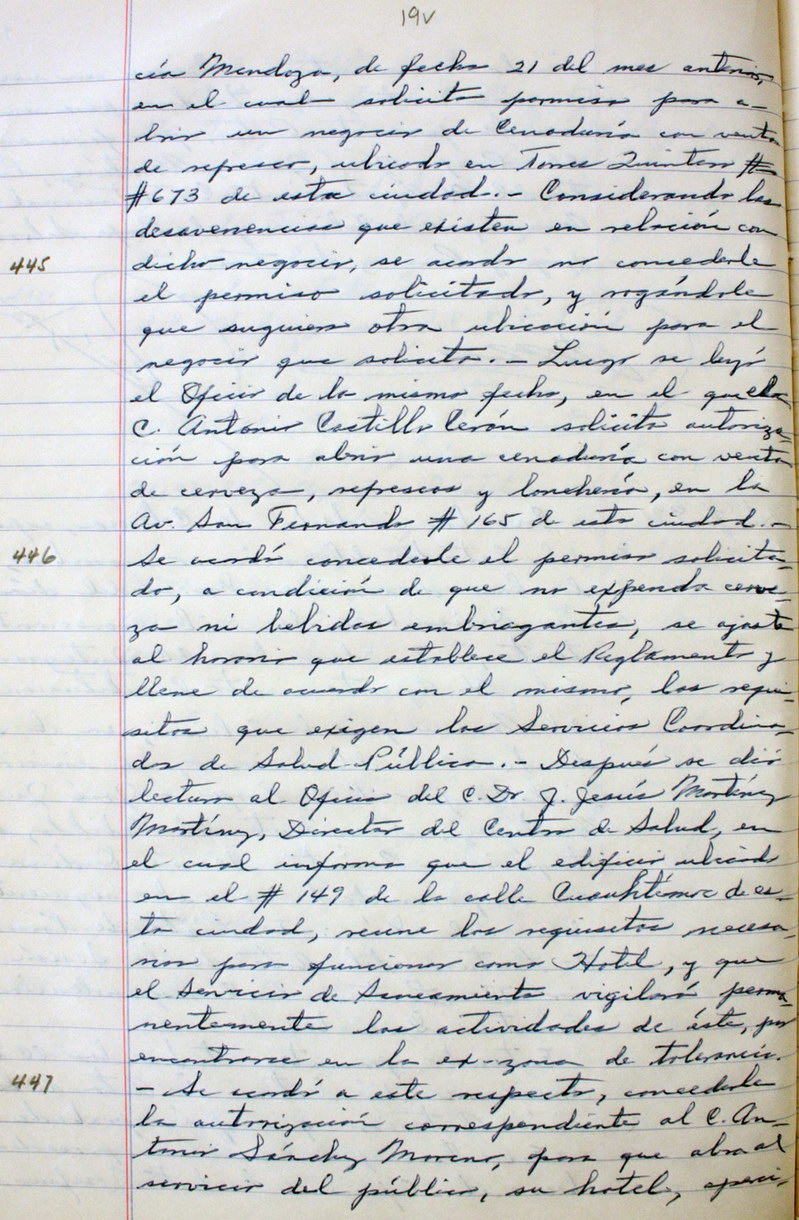 19v
cía Mendoza, de fecha 21 del mes anterior,
en el cual solicita permiso para a-
brir un negocio de Cenaduría con venta
de refresco, ubicado en Torres Quintero #
#673 de esta ciudad.- Considerando las
desavenencias que existen en relación con
445 dicho negocio, se acordó no concederle
el permiso solicitado, y rogándole
que sugiera otra ubicación para el
negocio que solicita.- Luego se leyó
el Oficio de la misma fecha, en el que el
C. Antonio Castillo Cerón solicita autoriza-
ción para abrir una cenaduría con venta
de cerveza, refrescos y lonchería, en la
Av. San Fernando # 165 de esta ciudad.-
446 Se acordó concederle el permiso solicita-
do, a condición de que no expenda cerve-
za ni bebidas embriagantes, se ajuste
al horario que establece el Reglamento y
llene de acuerdo con el mismo, los requi-
sitos que exigen los Servicios Coordina-
dos de Salud Pública.- Después se dió
lectura al Oficio del C. Dr. J. Jesús Martínez
Martínez, Director del Centro de Salud, en
el cual informa que el edificio ubicado
en el # 149 de la calle Cuauhtémoc de es-
ta ciudad, reune los requisitos necesa-
rios para funcionar como Hotel, y que
el Servicio de Saneamiento vigilará perma-
nentemente las actividades de éste, por
encontrarse en la ex-zona de tolerancia.
447 - Se acordó a este respecto, concederle
la autorización correspondiente al C. An-
tonio Sánchez Moreno, para que abra al
servicio del público, su hotel, aperci-